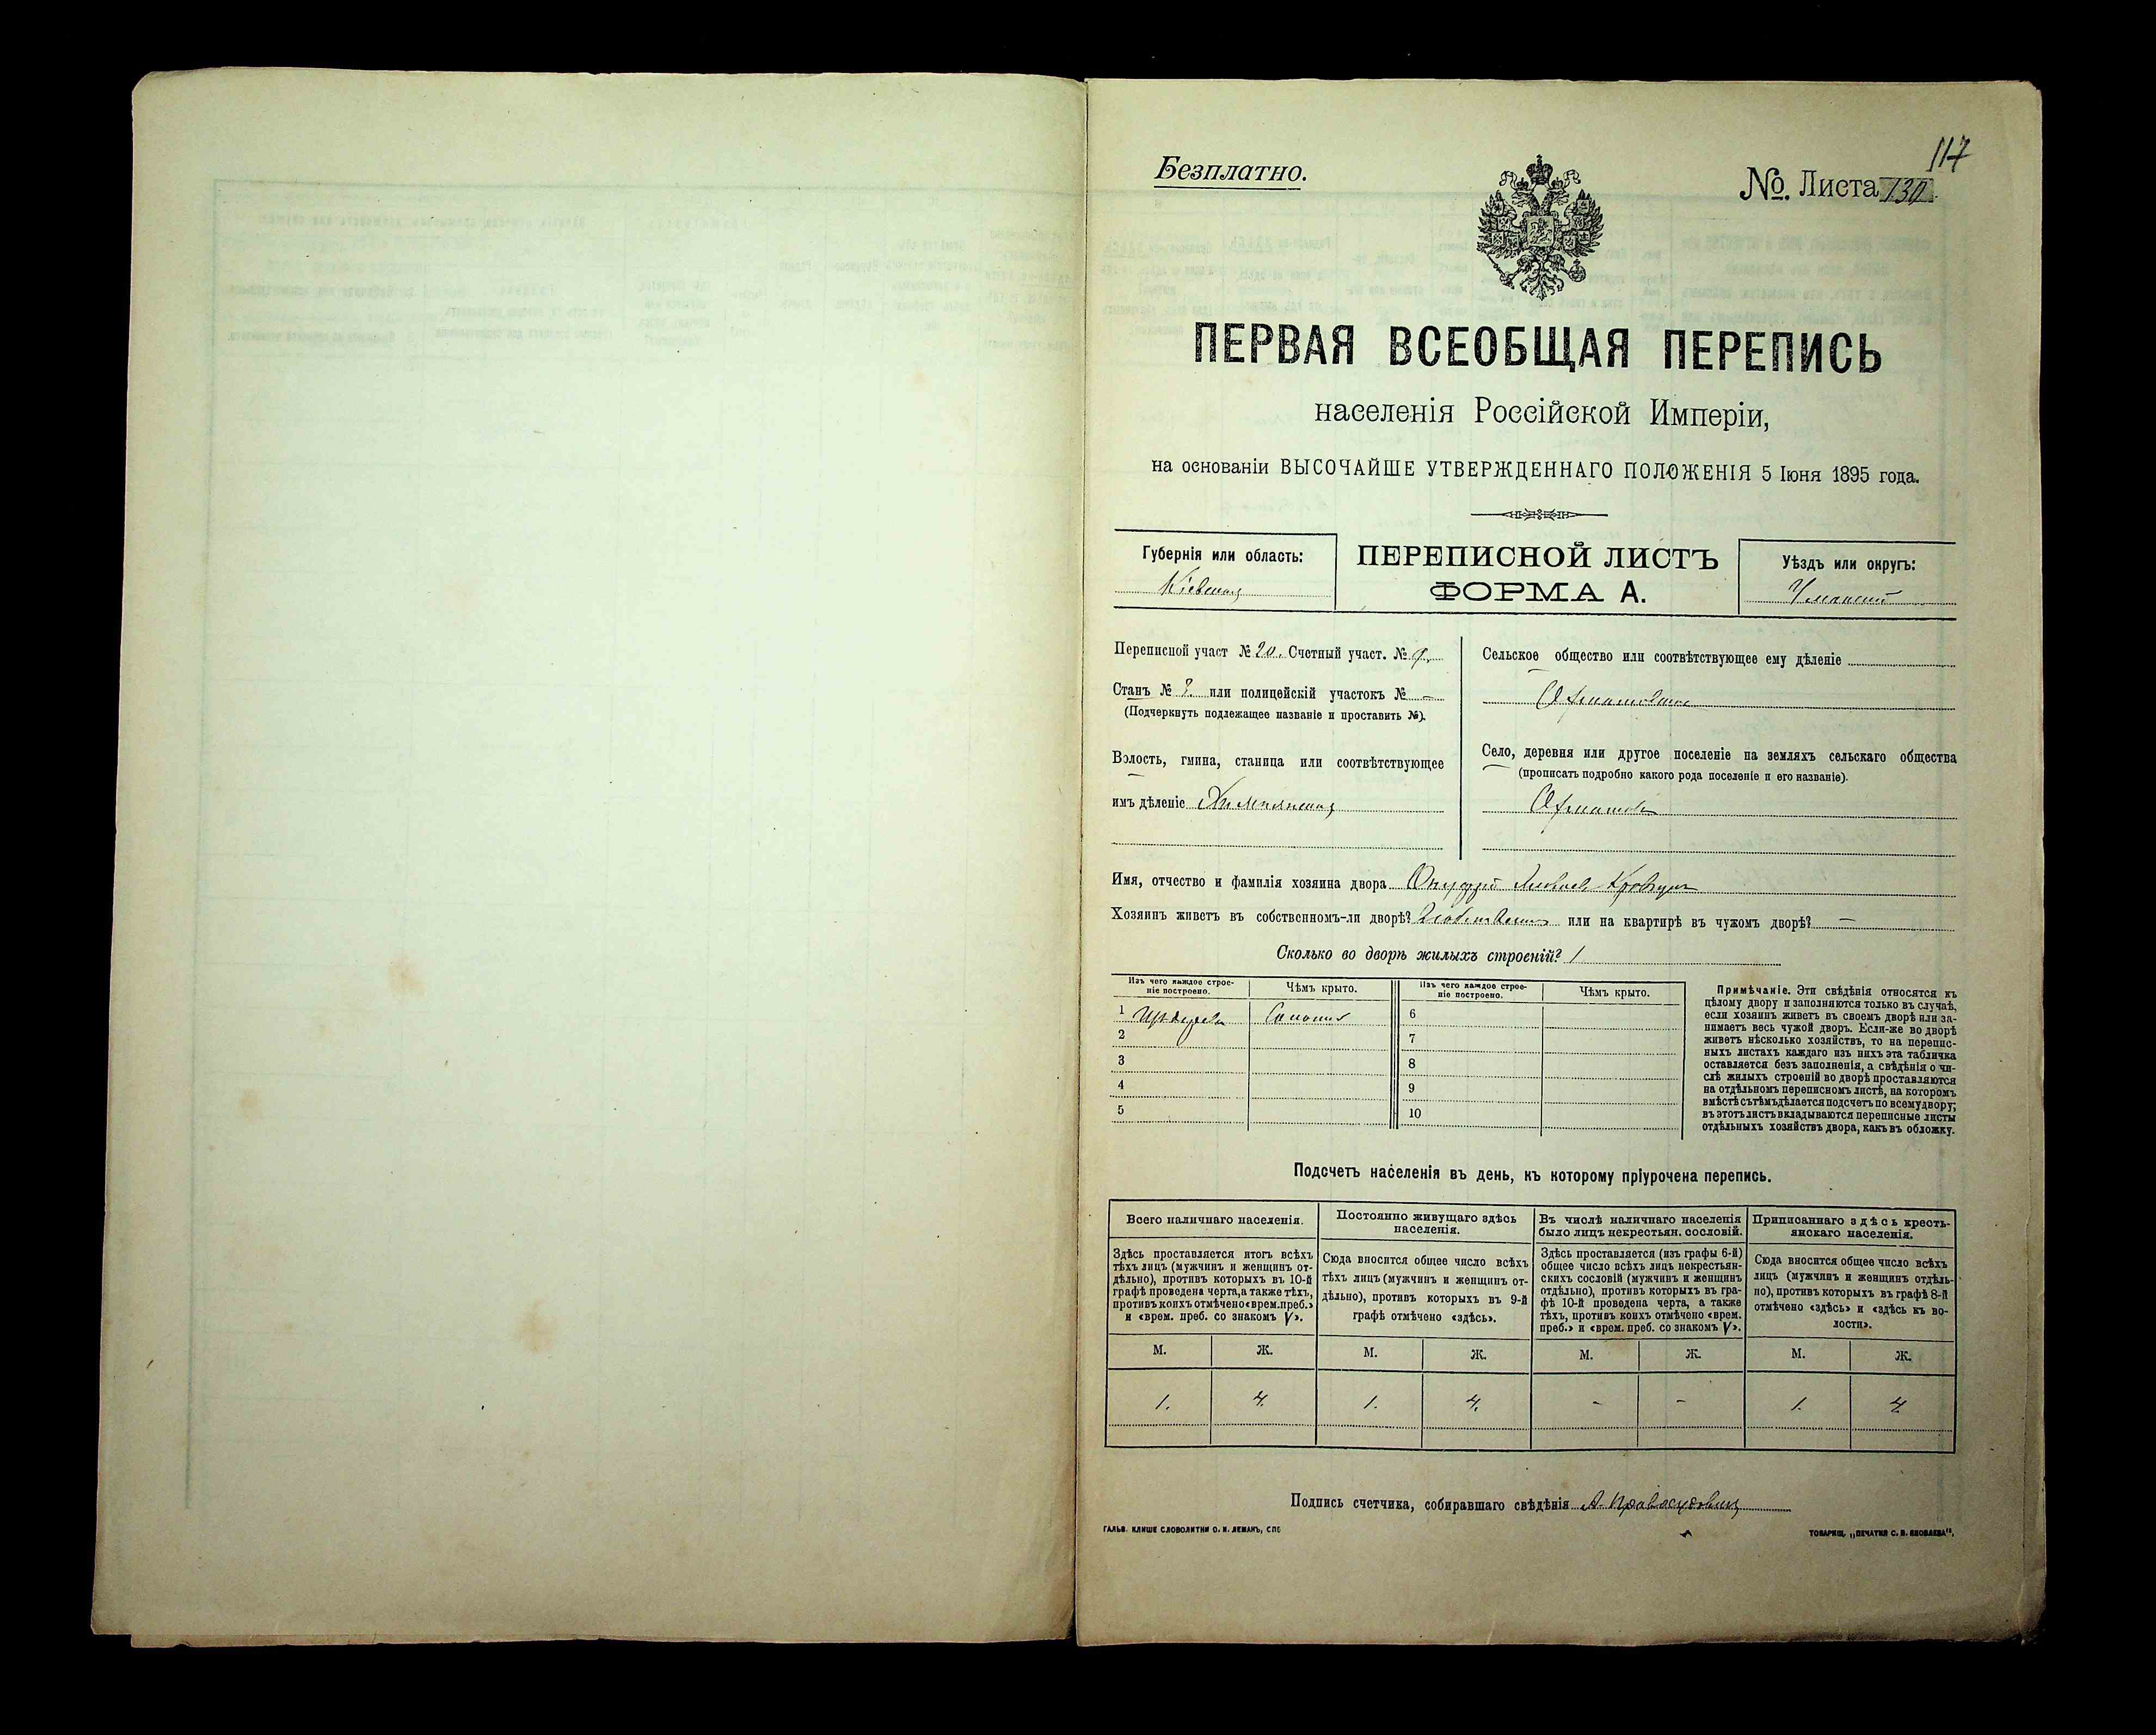 117
Безплатно.
№. Листа 130
ПЕРВАЯ ВСЕОБЩАЯ ПЕРЕПИСЬ
населенія Россійской Имперіи,
на основаніи ВЫСОЧАЙШЕ УТВЕРЖДЕННАГО ПОЛОЖЕНІЯ 5 Іюня 1895 года.
Губернія или область:
Кіевская
ПЕРЕПИСНОЙ ЛИСТЪ
ФОРМА А.
Уѣздъ или округъ:
Уманскій
Переписной участ № 20. Счетный участ. № 9.
Станъ № или полицейскій участокъ № –
(Подчеркнуть подлежащее названіе и проставить №).
Волость, гмина, станица или соотвѣтствующее
имъ дѣленіе
Сельское общество или соотвѣтствующее ему дѣленіе
Охматовское
Село, деревня или другое поселеніе на земляхъ сельскаго общества
(прописать подробно какого рода поселеніе и его названіе).
Охматовъ
Имя, отчество и фамилія хозяина двора Онуфрій Яковлевъ Кравчукъ
Хозяинъ живетъ въ собственномъ-ли дворѣ? или на квартирѣ въ чужомъ дворѣ? –
Сколько во дворѣ жилыхъ строеній? 1
Изъ чего каждое строе-
ніе построено.
Чѣмъ крыто.
Изъ чего каждое строе-
ніе построено.
Чѣмъ крыто.
1 Изъ дерева Соломою 6
2 7
3 8
4 9
5 10
Примѣчаніе. Эти свѣдѣнія относятся къ
цѣлому двору и заполняются только въ случаѣ,
если хозяинъ живетъ въ своемъ дворѣ или за-
нимаетъ весь чужой дворъ. Если-же во дворѣ
живетъ нѣсколько хозяйствъ, то на перепис-
ныхъ листахъ каждаго изъ нихъ эта табличка
оставляется безъ заполненія, а свѣдѣнія о чи-
слѣ жилыхъ строеній во дворѣ проставляются
на отдѣльномъ переписномъ листѣ, на которомъ
вмѣстѣ съ тѣмъ дѣлается подсчетъ по всему двору;
въ этотъ листъ вкладываются переписные листы
отдѣльныхъ хозяйствъ двора, какъ въ обложку.
Подсчетъ населенія въ день, къ которому пріурочена перепись.
Всего наличнаго населенія.
Здѣсь проставляется итогъ всѣхъ
тѣхъ лицъ (мужчинъ и женщинъ от-
дѣльно), противъ которыхъ въ 10-й
графѣ проведена черта, а также тѣхъ,
противъ коихъ отмѣчено «врем. преб.»
и «врем. преб. со знакомъ V».
Постоянно живущаго здѣсь
населенія.
Сюда вносится общее число всѣхъ
тѣхъ лицъ (мужчинъ и женщинъ от-
дѣльно), противъ которыхъ въ 9-й
графѣ отмѣчено «здѣсь».
Въ числѣ наличнаго населенія
было лицъ некрестьян. сословій.
Здѣсь проставляется (изъ графы 6-й)
общее число всѣхъ лицъ некрестьян-
скихъ сословій (мужчинъ и женщинъ
отдѣльно), противъ которыхъ въ гра-
фѣ 10-й проведена черта, а также
тѣхъ, противъ коихъ отмѣчено «врем.
преб.» и «врем. преб. со знакомъ V».
Приписаннаго здѣсь кресть-
янскаго населенія.
Сюда вносится общее число всѣхъ
лицъ (мужчинъ и женщинъ отдѣль-
но), противъ которыхъ въ графѣ 8-й
отмѣчено «здѣсь» и «здѣсь къ во-
лости».
М. Ж. М. Ж. М. Ж. М. Ж.
1. 4. 1. 4. – – 1. 4.
Подпись счетчика, собиравшаго свѣдѣнія
ГАЛЬВ. КЛИШЕ СЛОВОЛИТНИ О. И. ЛЕМАНЪ, СПБ
ТОВАРИЩ. „ПЕЧАТНЯ С. П. ЯКОВЛЕВА“,